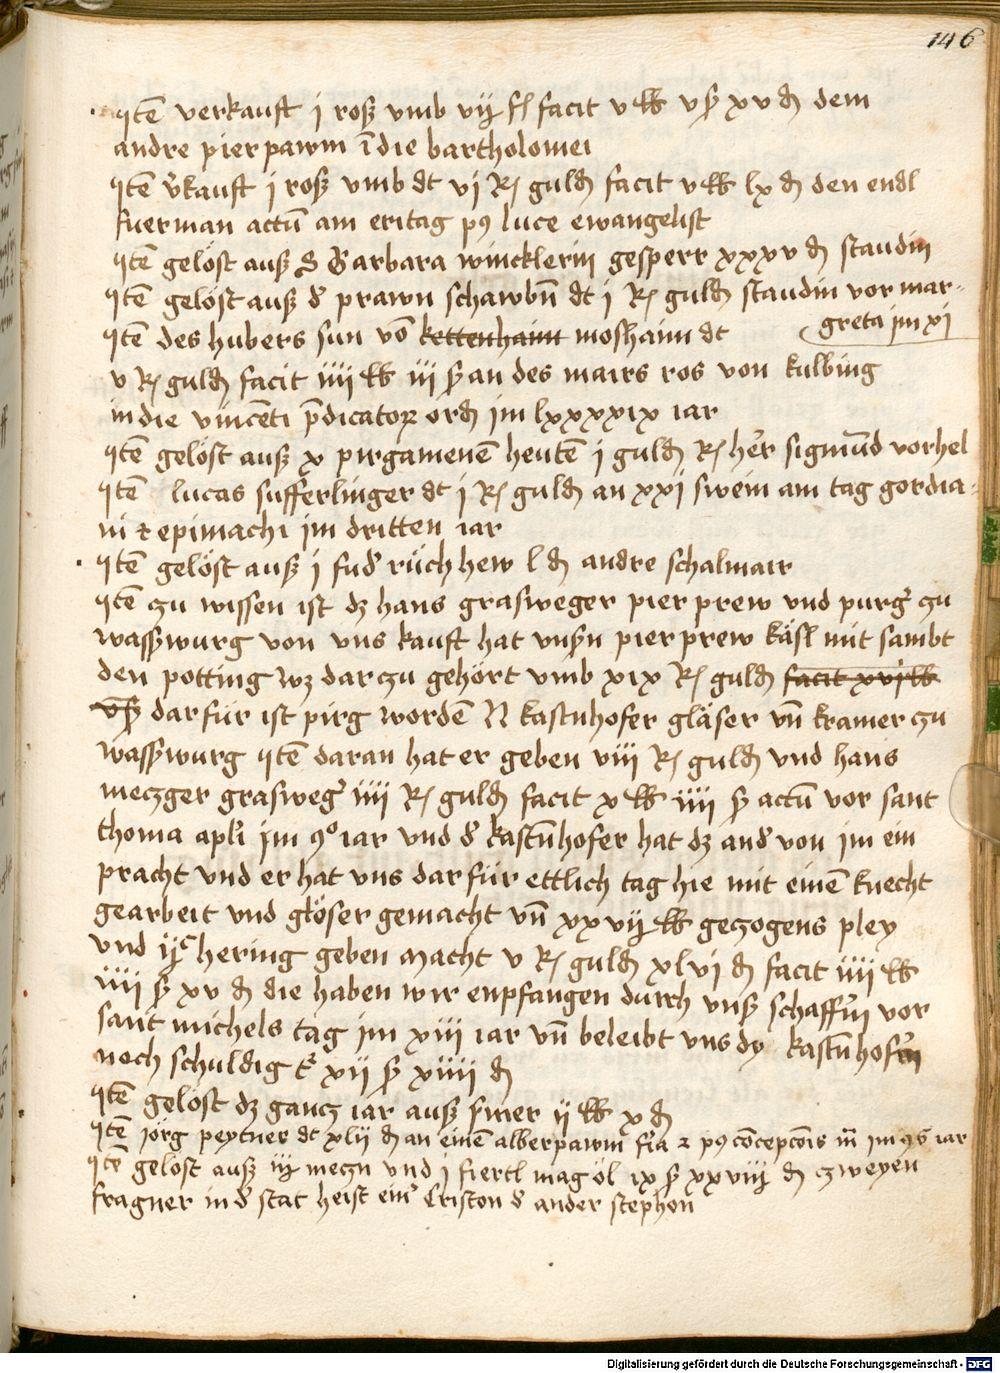 146
Itē verkauft j roß vmb vij fl facit v lb v ß xv d dem
andre pierpawm ī die bartholomei
Itē v̄kauft j roß vmb dt vj R guld facit v lb lx d den endl
fuerman actū am eritag p9 luce ewangelist
Itē gelöst auß d Barbara wincklerin gesperr xxxv d staudin
Itē gelöst auß d prawn schawbn̄ dt j R guld staudin vor mar-
greta jm xj
Itē des hubers sun vō kettenhaim moshaim dt
v R guld facit iiij lb iij ß an des mairs ros von kulbing
in die vincēti p̄dicator ord jm lxxxxix iar
Itē gelöst auß x pirgamenē heutē j guld R her sigmūd vorhel
Itē lucas sufferlinger dt j R guld an xxj swein am tag gordia-
ni et epimachi jm dritten iar
Itē gelöst auß j fud rüch hew l d andre schalmair
Itē zu wissen ist dz hans grasweger pierprew vnd purg zu
wasserwurg von vns kauft hat vnsn pierprew käsl mit sambt
den potting wz darzu gehört vmb xix R guld facit xvj lb
v ß darfür ist pirg wordē N kastnhofer gläser vn̄ kramer zu
wasserwurg Itē daran hat er geben viij R guld vnd hans
meczger grasweg iiij R guld facit x lb iiij ß actū vor sant
thoma apli jm 9o iar vnd d kastn̄hofer hat dz and von jm ein
pracht vnd er hat vns darfür ettlich tag hie mit einē knecht
gearbeit vnd glöser gemacht vn̄ xxvij lb gezogens pley
vnd ijc hering geben macht v R guld xlvj d facit iiij lb
iiij ß xv d die haben wir enpfangen durch vnsß schaffn̄ vor
sant michels tag jm xiij iar vn̄ beleibt vns dy kastn̄hofrin
noch schuldig xij ß xiiij d
Itē gelöst dz gancz iar auß smer ij lb x d
Itē jörg peytner dt xlij d an einē alberpawm fia 2 p9 cōcepcōis m̄ jm 9s iar
Itē gelöst auß iij meczn vnd j fiertl mag öl ix ß xxviij d zweyen
fragner in d stat heist ein Criston d ander stephon
Digitalisierung gefördert durch die Deutsche Forschungsgemeinschaft - DFG